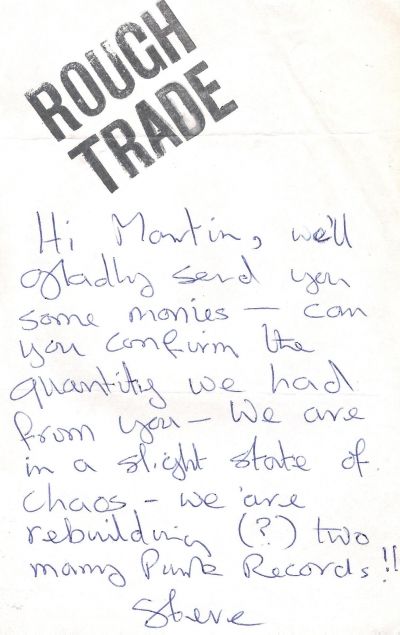 ROUGH
TRADE
Hi Martin, we'll
gladly send you
some monies — can
you confirm the
quantity we had
from you — We are
in a slight state of
chaos - we are
rebuilding (?) two
many Punk Records!!
Steve